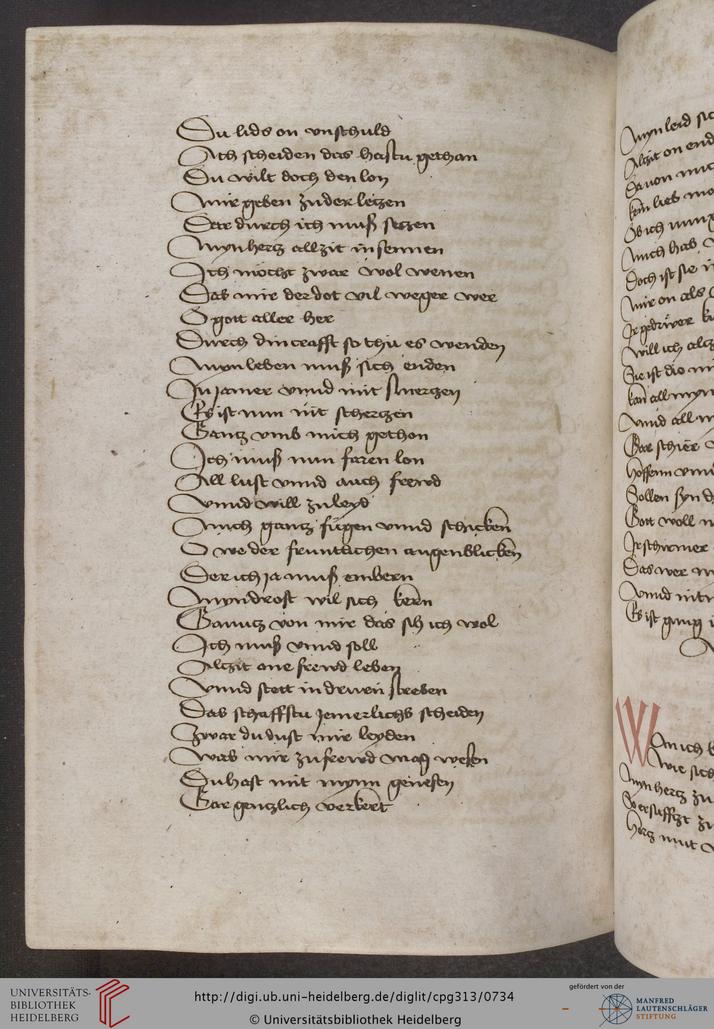 Du lids on vnschuld
Ach scheiden das hastu gethan
Du wilt doch den lon
Mir geben zu der letzen
Dar durch ich muß setzen
Myn hertz allzit in sennen
Ich mocht zwar wol wenen
Das mir der dot vil weger wer
O gott aller her
Durch din crafft so thu es wenden
Myn leben muß sich enden
In jamer vnnd mit smertzen
Es ist nun nit schertzen
Gantz vmb mich gethon
Ich muß nun faren lon
All lust vnnd auch frewd
Vnnd will zu leyd
Mich gantz fügen vnnd schicken
O we der fruntlichen augenblicken
Der ich ja muß embern
Myn drost wil sich kern
Ganntz von mir das sih ich wol
Ich muß vnnd soll
Alzit ane frewd leben
Vnnd stett in druwen streben
Das schaffstu jemerlichs scheiden
Zwar du dust mir leyden
Was mir zu frewd mag wesen
Du hast mit mynn genesen
Gar gentzlich verkert
Myn leid
Alzit on end
Da von
kein lieb
Ob ich
Mich hab
Doch ist sie
Mir on als
Ir gedruwer
Will ich
Sie ist die
kan all myn
Vnnd all
Gar schier
Hoffenn vnnd
Sollen syn
Gott woll
Ir schirmer
Das wer
Vnnd
Es ist gnug
Wie sich
Myn hertz zu
Versufftzt zu
Hertz mut
UNIVERSITÄTS-
BIBLIOTHEK
HEIDELBERG
http://digi.ub.uni-heidelberg.de/diglit/cpg313/0734
© Universitätsbibliothek Heidelberg
gefördert von der
MANFRED
LAUTENSCHLÄGER
STIFTUNG